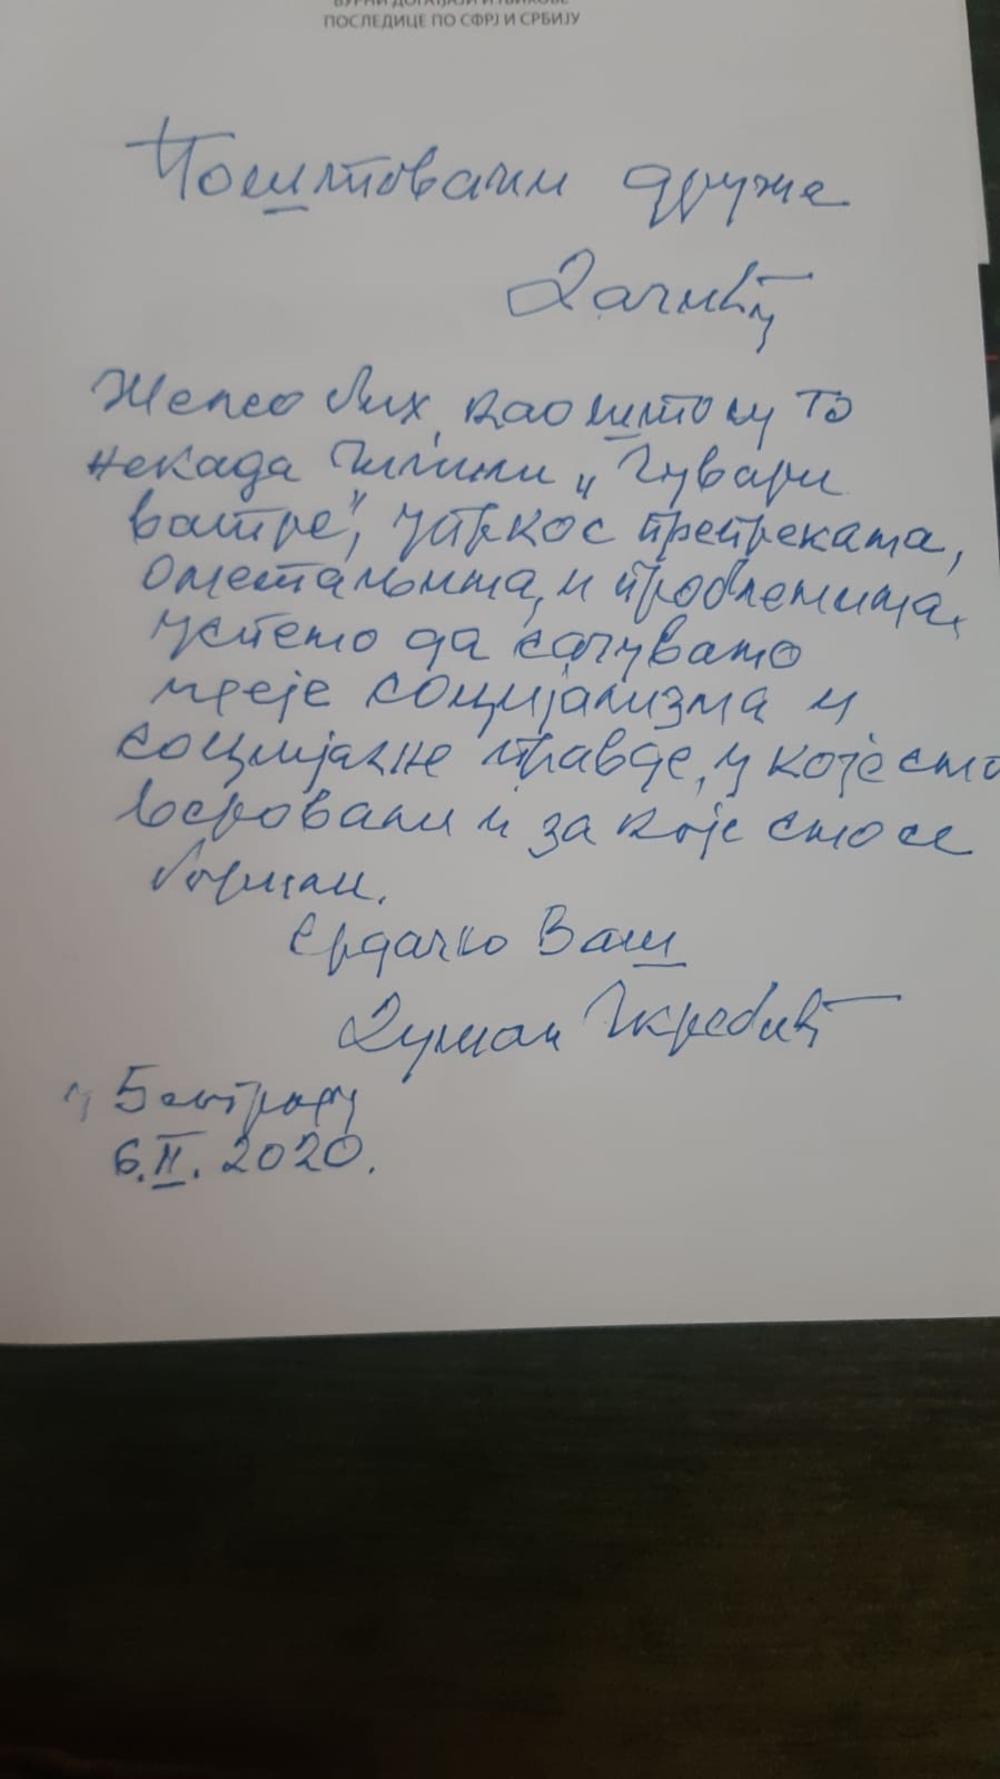 БУРНИ ДОГАЂАЈИ И ЊИХОВЕ
ПОСЛЕДИЦЕ ПО СФРЈ И СРБИЈУ
Поштовани друже
Дачићу
Желео бих, као што су то
некада чинили „Чувари
ватре", упркос препрекама,
ометањима, и проблемима,
успемо да сачувамо
идеје социјализма и
социјалне правде, у које смо
веровали и за које смо се
борили.
Срдачно Ваш
Душан Чкребић
у Београду
6.II.2020.